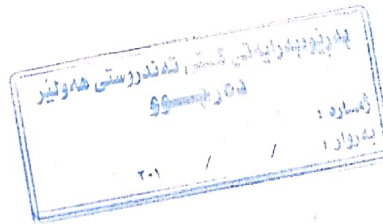 بەڕێوەبەرایەتی گشتی تەندروستی هەولێر
دەرچوو
ژمارە :
بەروار : / / ٢٠١